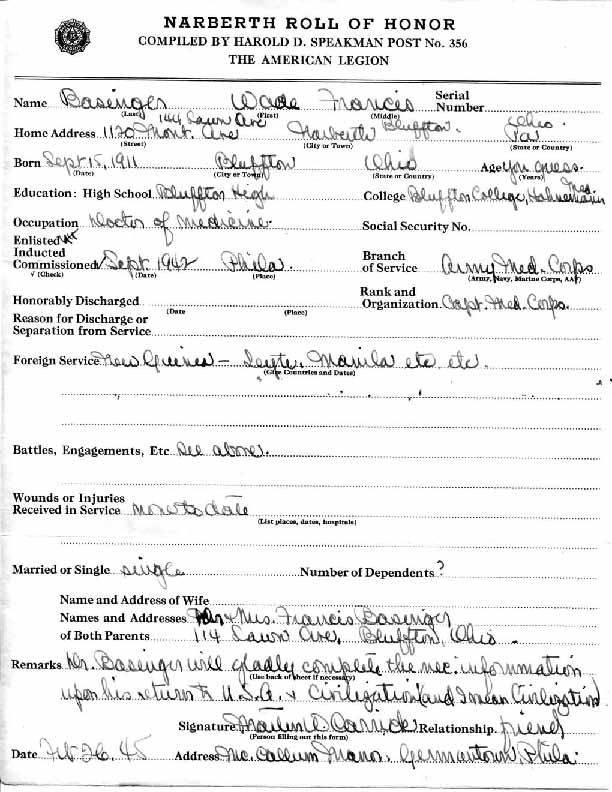 NARBERTH ROLL OF HONOR
COMPILED BY HAROLD D. SPEAKMAN POST No. 356
THE AMERICAN LEGION
Name Basinger Wade Francis Serial Number
(Last) (First) (Middle)
114 Lawn Ave Bluffton Ohio
Home Address 1120 Mont. Ave Narberth Pa
(Street) (City or Town) (State or Country)
Born Sept 15, 1911 Bluffton Ohio Age you guess.
(Date) (City or Town) (State or Country) (Years)
Education: High School Bluffton High College Bluffton College, Hahnemann Med.
Occupation Doctor of Medicine Social Security No.
Enlisted
Inducted
Commissioned Sept. 1942 Phila. Branch of Service Army Med. Corps
√ (Check) (Date) (Place) (Army, Navy, Marine Corps, AAF)
Honorably Discharged Rank and Organization Capt. Med. Corps.
(Date (Place)
Reason for Discharge or
Separation from Service
Foreign Service New Guinea – Leyte, Manila etc etc.
(Give Countries and Dates)
Battles, Engagements, Etc. See above.
Wounds or Injuries
Received in Service none to date
(List places, dates, hospitals)
Married or Single single Number of Dependents?
Name and Address of Wife
Names and Addresses Mr & Mrs. Francis Basinger
of Both Parents 114 Lawn Ave, Bluffton, Ohio.
Remarks Dr. Basinger will gladly complete the nec. information
(Use back of sheet if necessary)
upon his return to U.S.A. & Civilization (and I mean Civilization)
Signature Carrick Relationship friend
(Person filling out this form)
Date Feb 26, 45 Address Mc Callum Manor. Germantown, Phila.